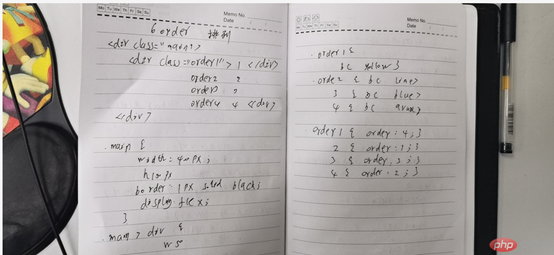 Memo No.
Date
6 order 排列
<div class="main">
<div class="order1"> 1 </div>
order2 2
order3 3
order4 4 </div>
</div>
.main {
width: 4 px;
h
border: 1px solid black;
display flex;
}
.main > div {
w 50
Mo Tu We Th Fr Sa Su
Memo No.
Date
.order1 {
bc yellow }
.order2 { bc
3 { bc blue }
4 { bc
order1 { order: 4; }
2 { order: 1; }
3 { order: 3; }
4 { order: 2; }
php